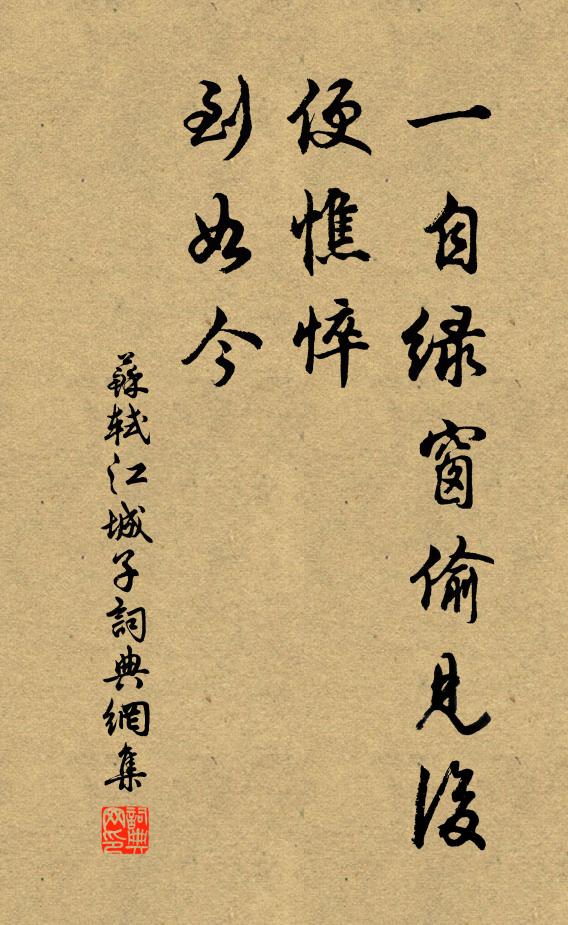 一自绿窗偷见後
便憔悴
到如今
蘇軾江城子詞典網集
詞典
网印